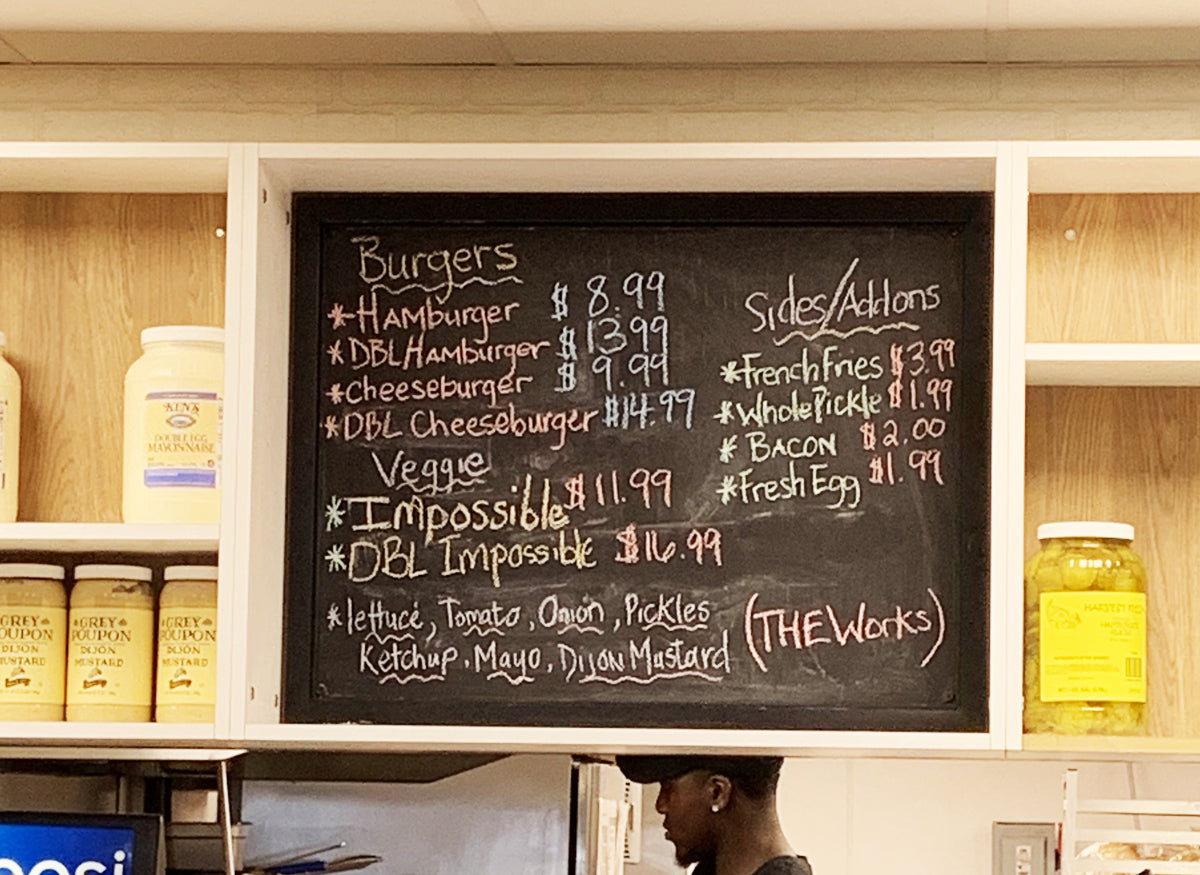 Burgers
*Hamburger $ 8.99
*DBL Hamburger $ 13.99
*Cheeseburger $ 9.99
*DBL Cheeseburger $14.99
Veggie
*Impossible $11.99
*DBL Impossible $16.99
*lettuce, Tomato, Onion, Pickles
Ketchup, Mayo, Dijon Mustard
(THE Works)
Sides/Addons
*French Fries $3.99
*Whole Pickle $1.99
*BACON $2.00
*Fresh Egg $1.99
KEN'S
DOUBLE EGG
MAYONNAISE
GREY
POUPON
DIJON
MUSTARD
GREY
POUPON
DIJON
MUSTARD
GREY
POUPON
DIJON
MUSTARD
HARVEST FRESH